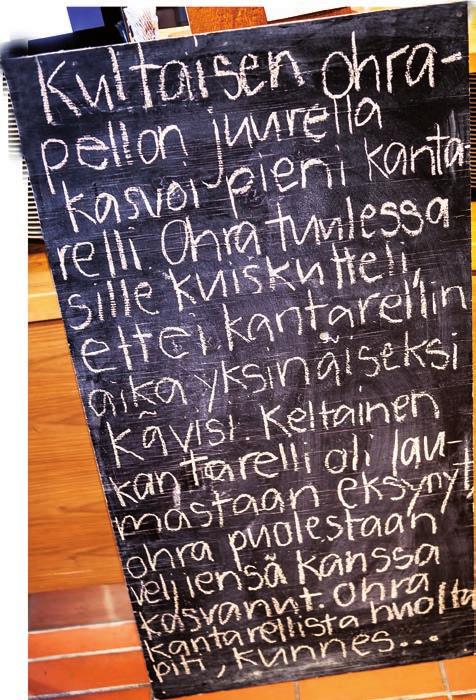 Kultaisen ohra-
pellon juurella
kasvoi pieni kanta-
relli. Ohra tuulessa
sille kuiskutteli,
ettei kantarellin
aika yksinäiseksi
kävisi. Keltainen
kantarelli oli lau-
mastaan eksynyt,
ohra puolestaan
veljiensä kanssa
kasvanut. Ohra
kantarellista huolta
piti, kunnes...